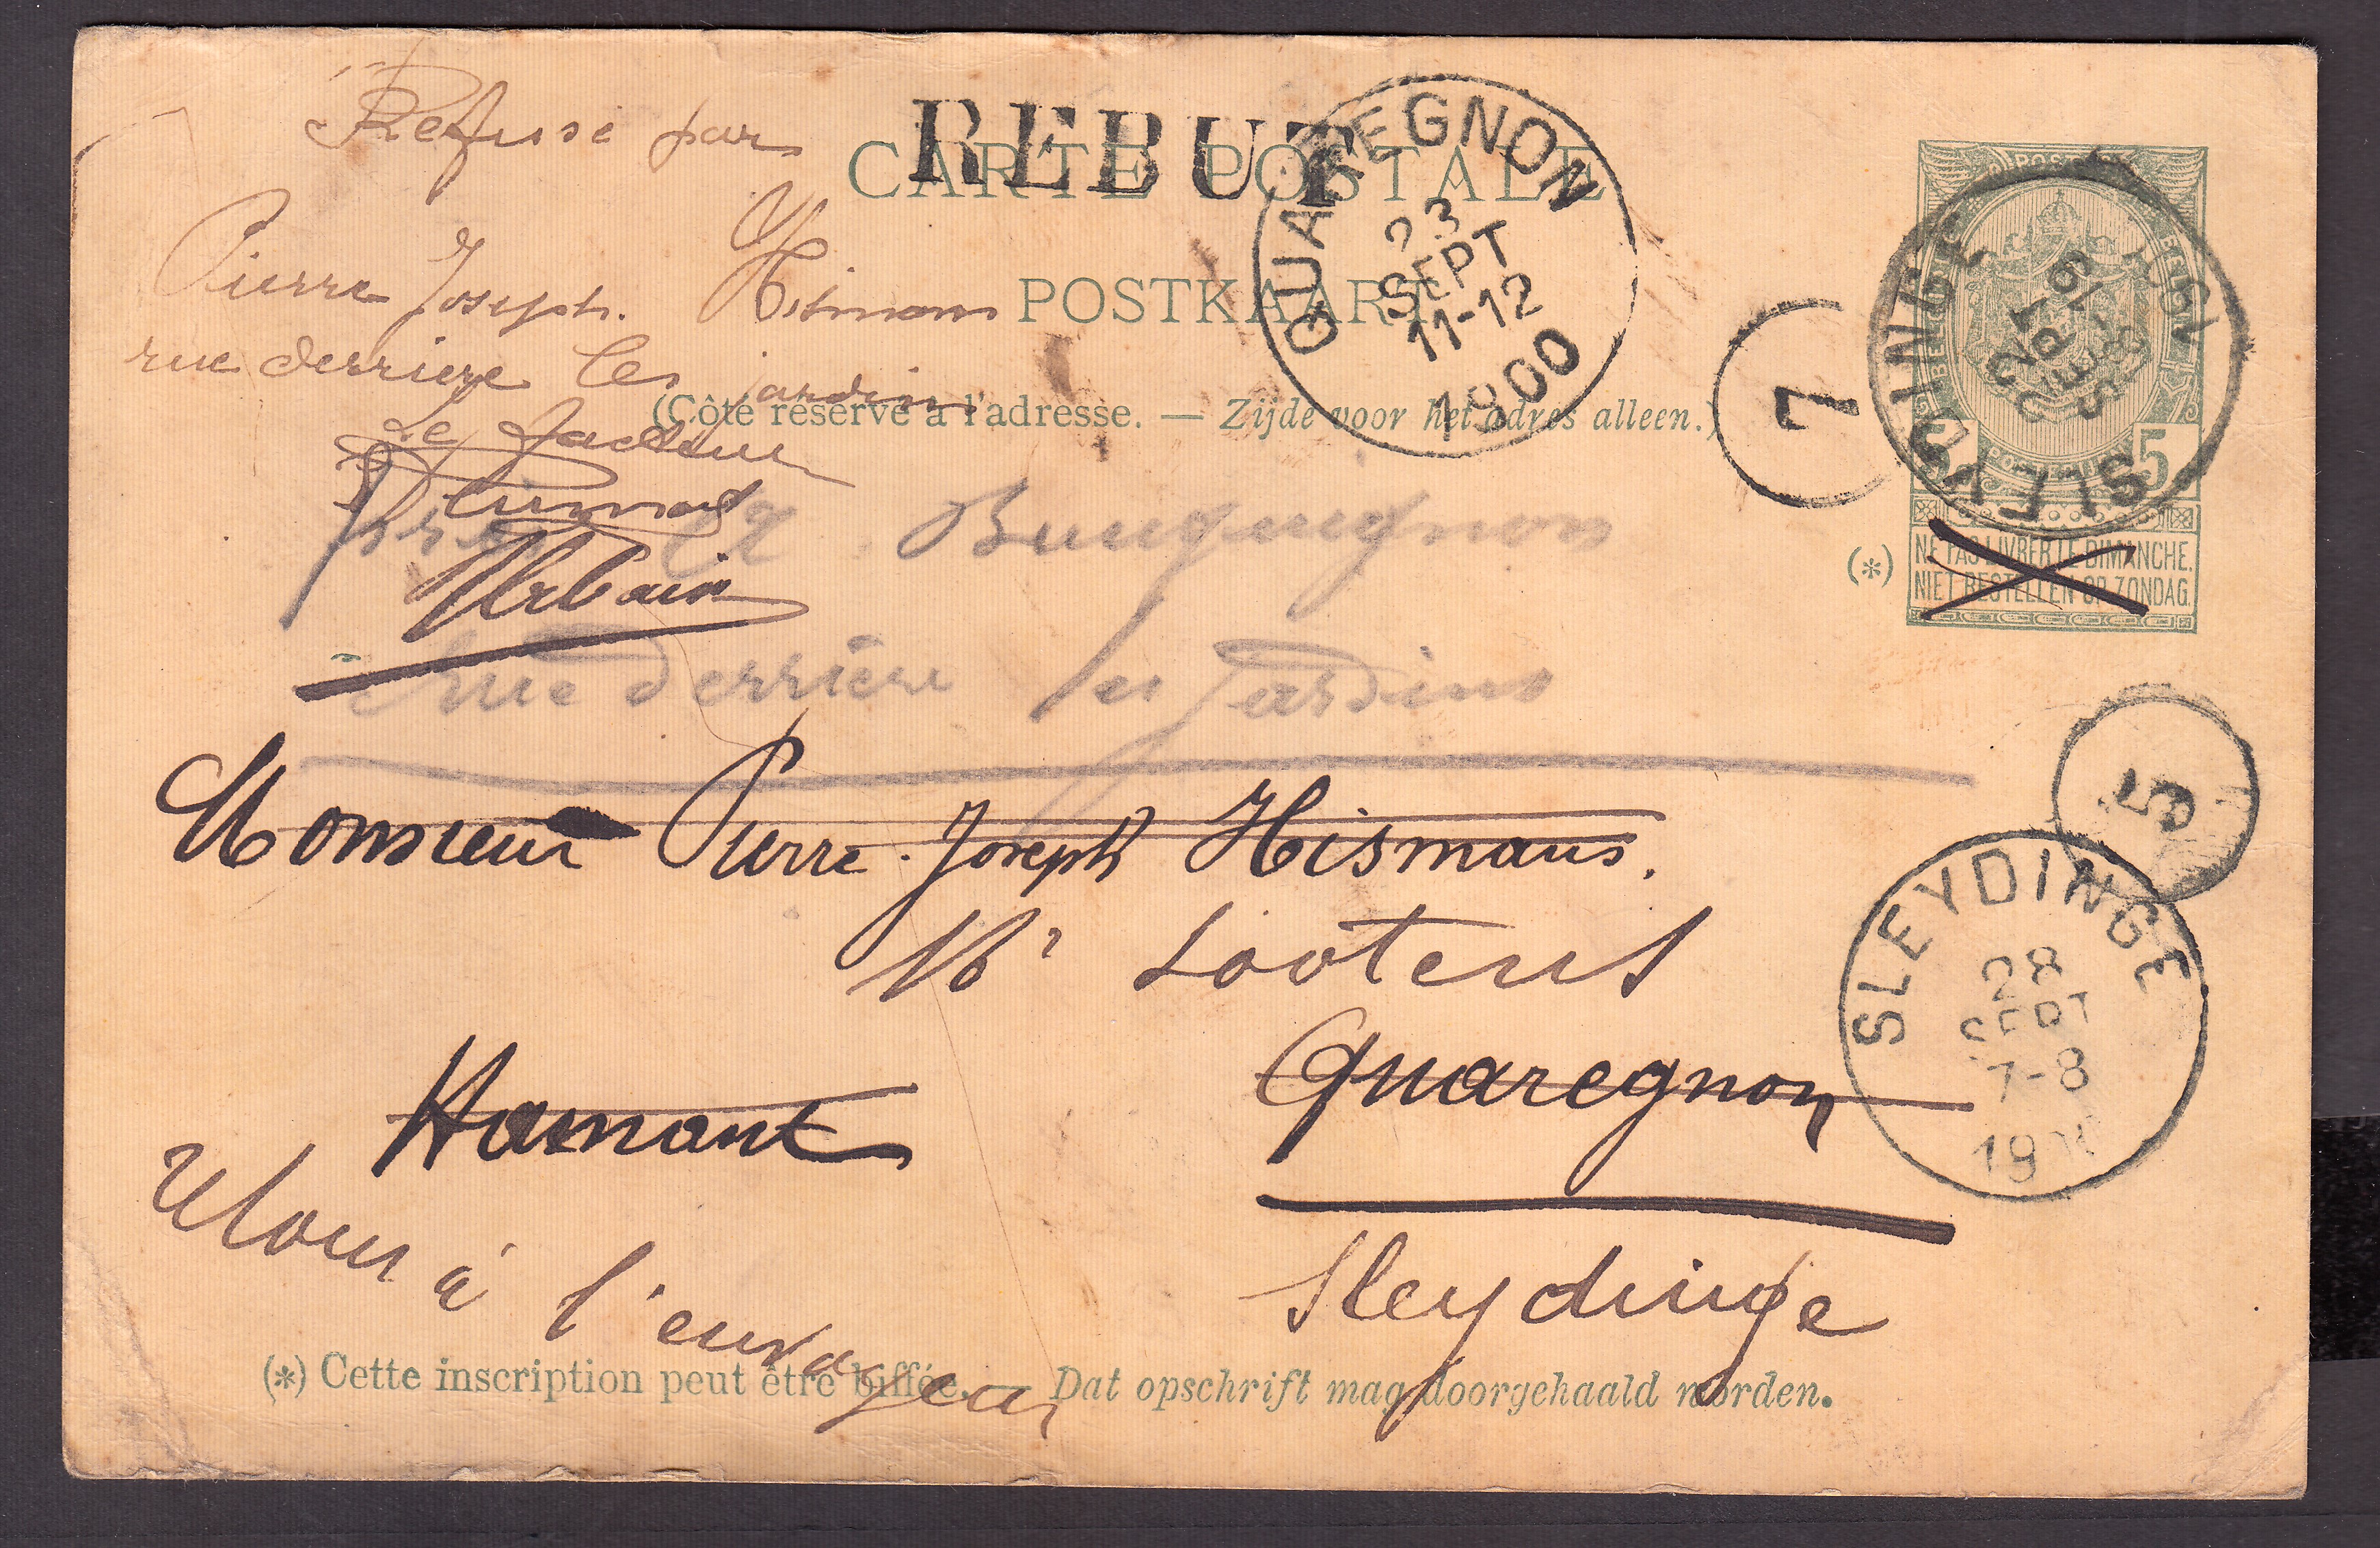 Refusé par
REBUT
CARTE POSTALE
Pierre Joseph. Hismans
POSTKAART
rue derriere les jardins
(Côté réservé à l'adresse. — Zijde voor het adres alleen.)
Le facteur
Urbain
QUAREGNON
23
SEPT
11-12
1900
7
SLEYDINGE
POSTES
5 5
(*)
NE PAS LIVRER LE DIMANCHE.
NIET BESTELLEN OP ZONDAG.
rue derrière les Jardins
Monsieur Pierre Joseph Hismans.
Mr Lootens
5
SLEYDINGE
28
SEPT
7-8
Quaregnon
Hamant
Sleydinge
à l'envoyeur
(*) Cette inscription peut être biffée. — Dat opschrift mag doorgehaald worden.